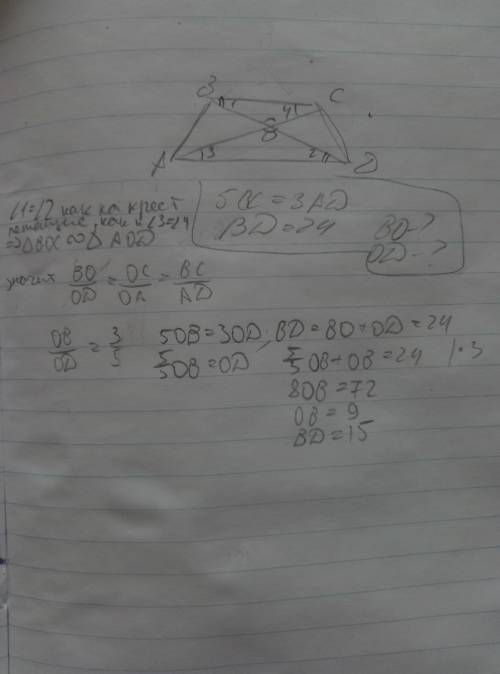 B C
4
O
A 3 2 D
∠1=∠2 как на крест
лежащие, как и ∠3=∠4
⇒ΔBOC ∾ Δ AOD
5BC = 3AD
BD = 24
BO-?
OD-?
значит BO/OD = OC/OA = BC/AD
OB/OD = 3/5
5OB = 3OD
5/3OB = OD
BD = BO + OD = 24
5/3OB + OB = 24 |·3
8OB = 72
OB = 9
BD = 15